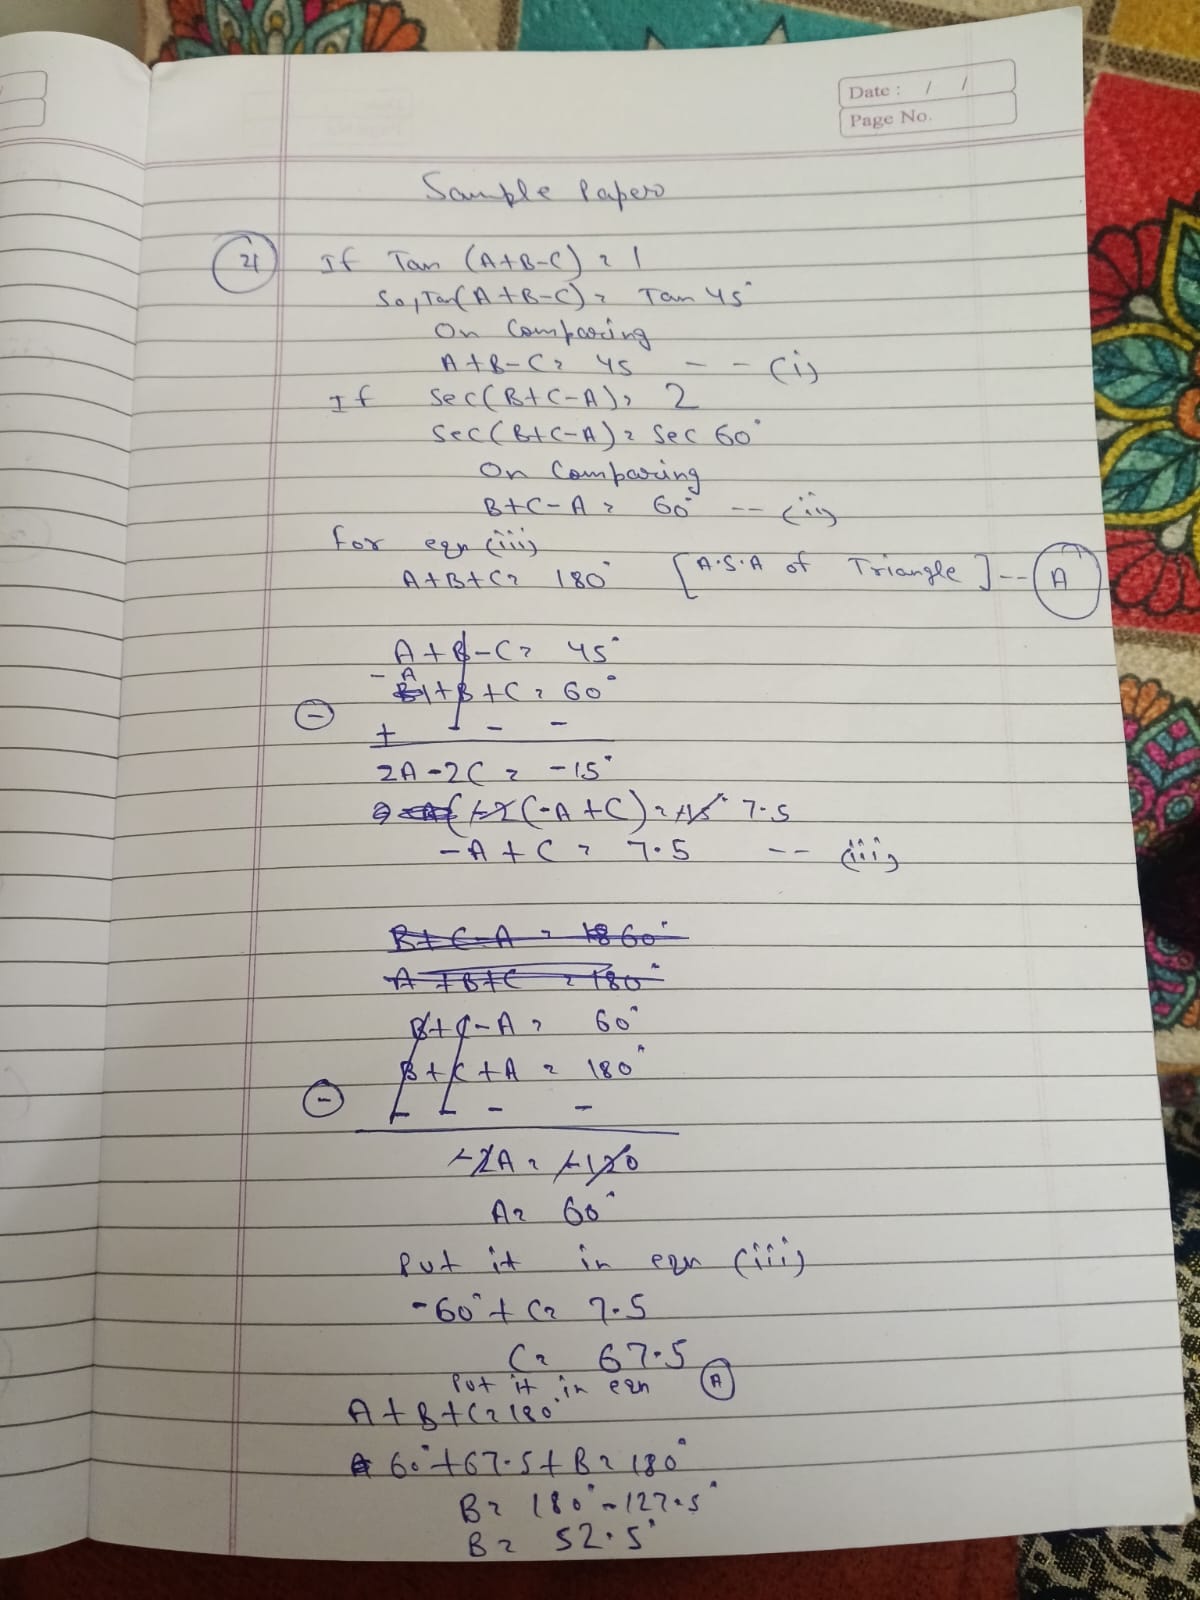 Date : / /
Page No.
Sample Paper
21 If Tan (A+B-C) = 1
So, Tan(A+B-C) = Tan 45°
On Comparing
A+B-C = 45 -- (i)
If Sec(B+C-A) = 2
Sec(B+C-A) = Sec 60°
On Comparing
B+C-A = 60° -- (ii)
for eqn (iii)
A+B+C = 180° [A.S.A of Triangle] -- A
A+B-C = 45°
-A+B+C = 60°
- + - - -
2A-2C = -15°
-2(-A+C) = -15° 7.5
-A+C = 7.5 -- (iii)
B+C-A = 60°
A+B+C = 180°
B+C-A = 60°
B+C+A = 180°
- - - - -
-2A = -120
A = 60°
Put it in eqn (iii)
-60°+C = 7.5
C = 67.5
Put it in eqn A
A+B+C = 180°
60°+67.5+B = 180°
B = 180°-127.5°
B = 52.5°